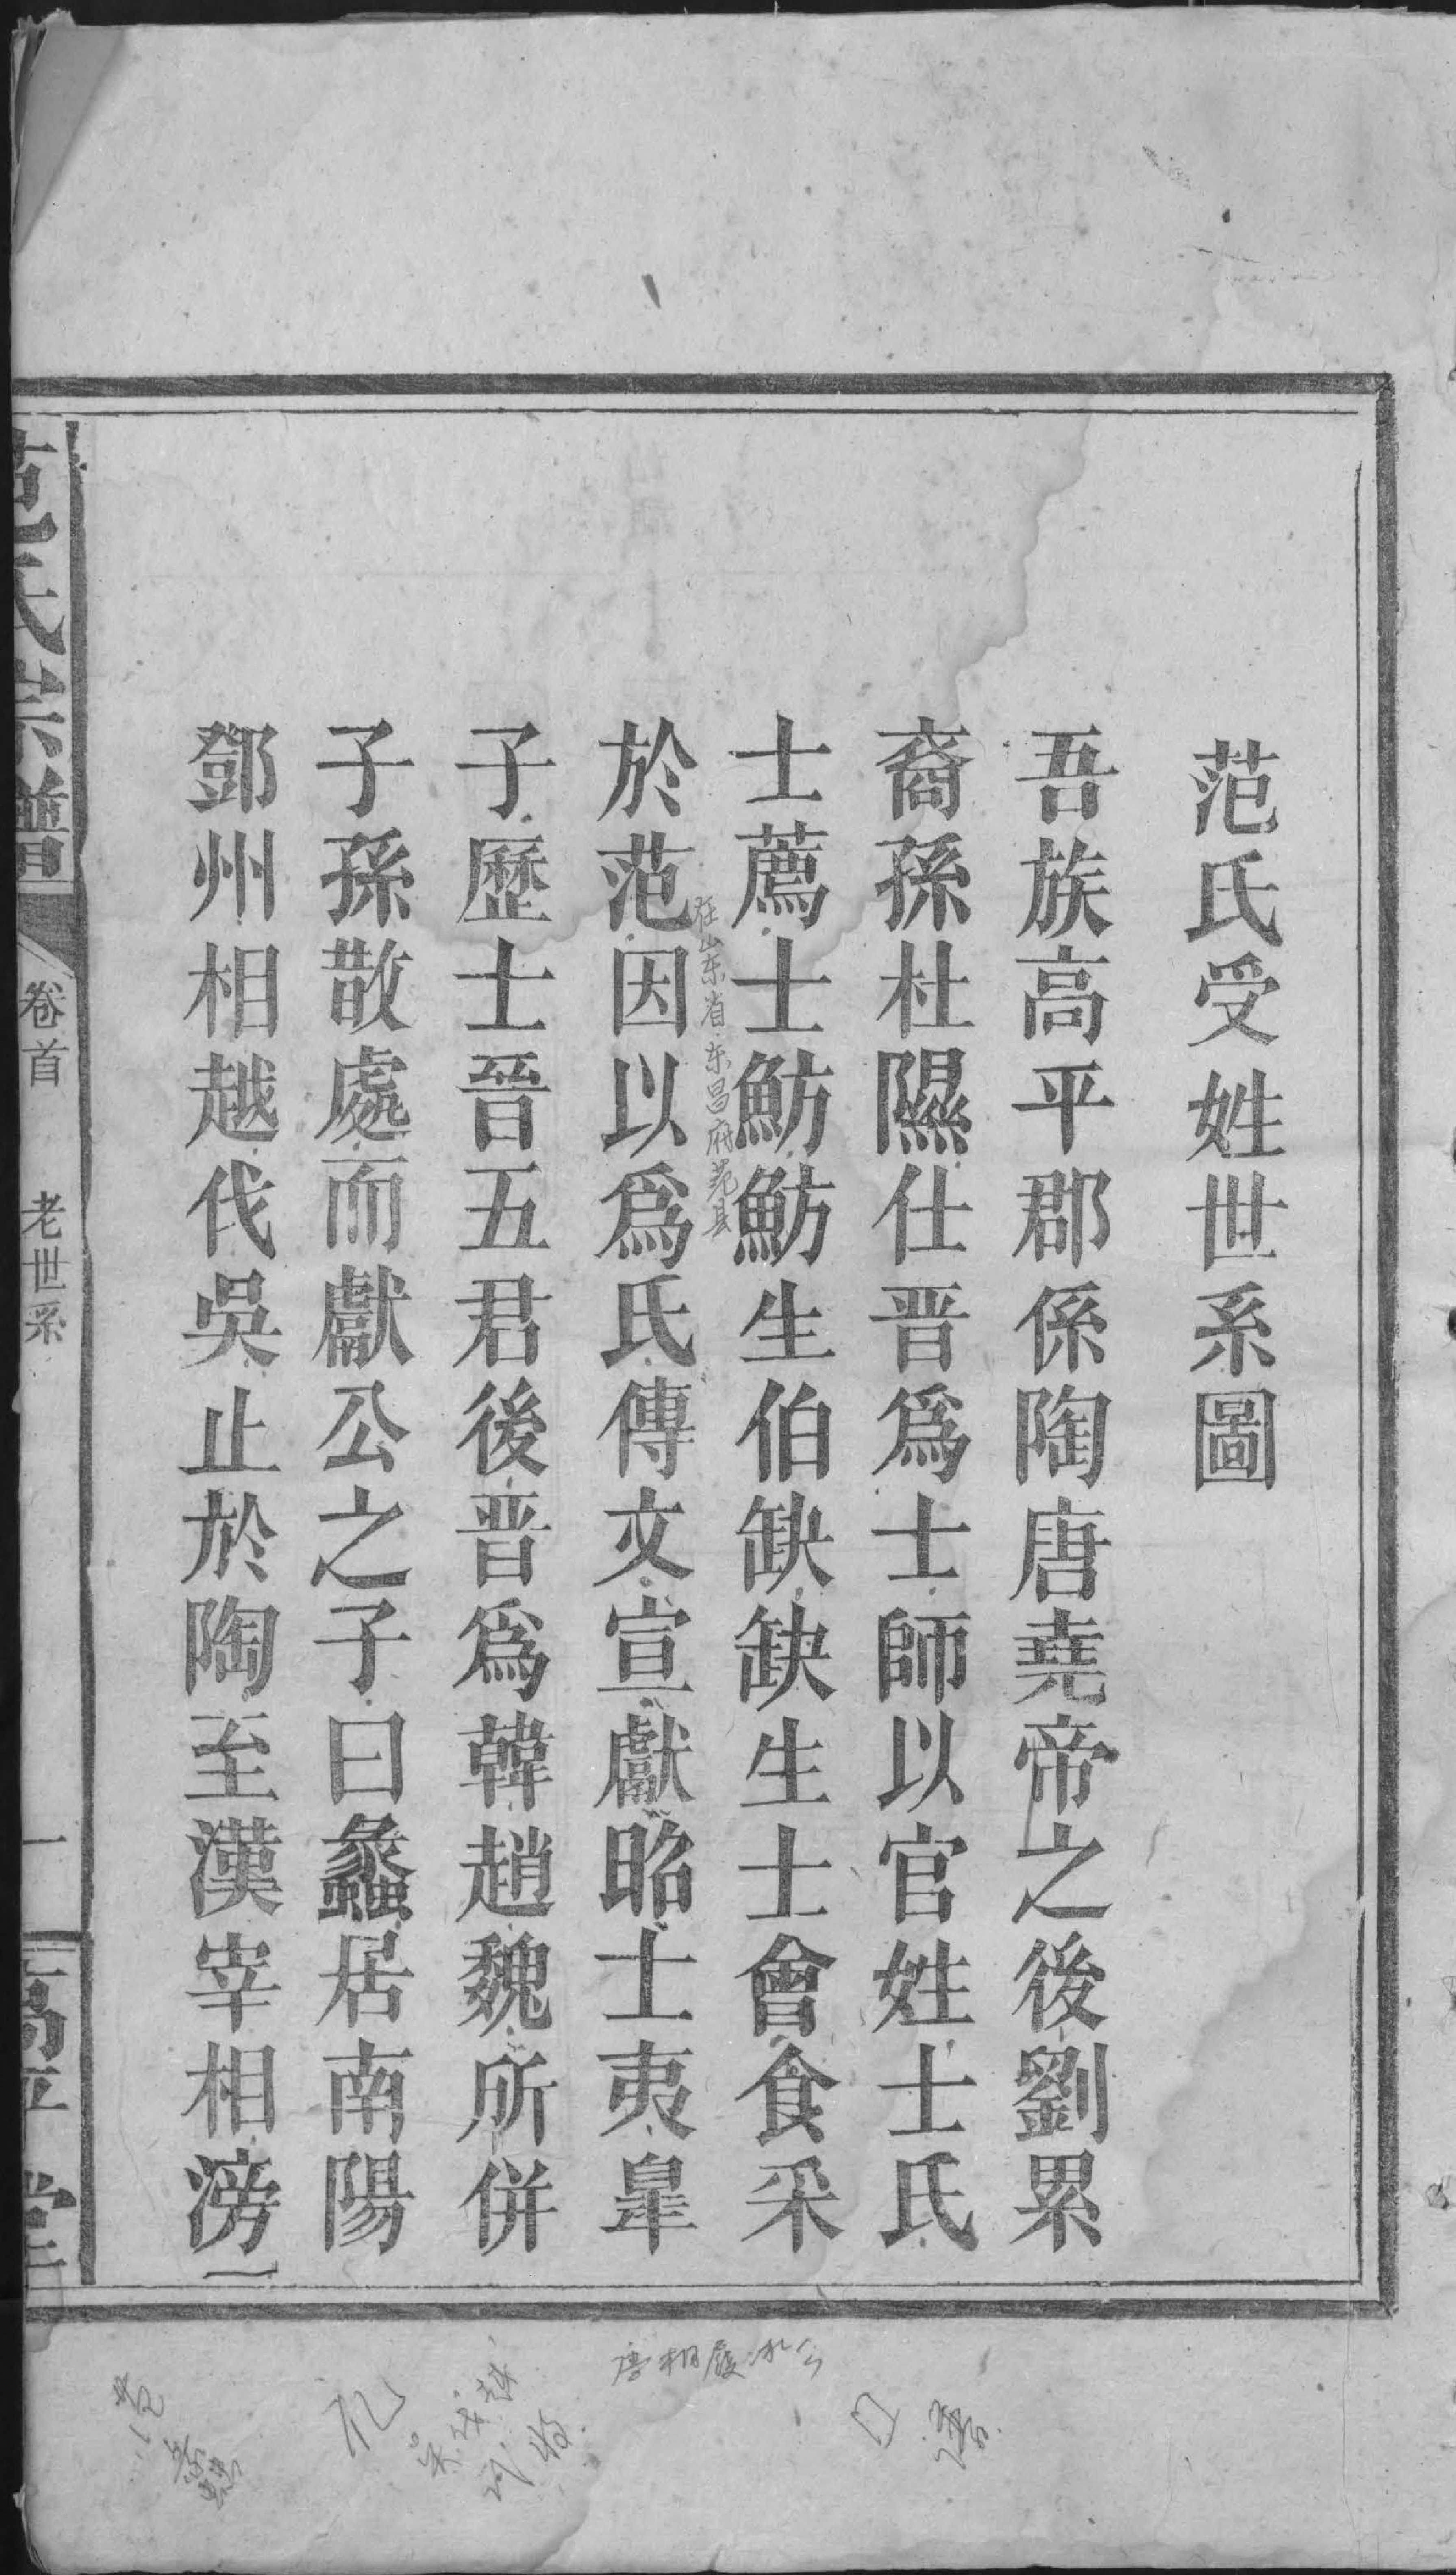 范氏受姓世系圖
吾族高平郡係陶唐堯帝之後劉累
裔孫杜隰仕晋爲士師以官姓士氏
士薦士魴魴生伯缺缺生士會食采
在山东省东昌府范县
於范因以爲氏傳文宣獻昭士夷臯
子歷士晉五君後晋爲韓趙魏所併
子孫散處而獻公之子曰蠡居南陽
鄧州相越伐吳止於陶至漢宰相滂
范氏宗譜
卷首
老世系
一
高平堂
唐相履冰公